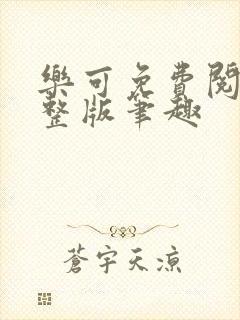 樂可免費閱
整版筆趣
蒼宇天涼